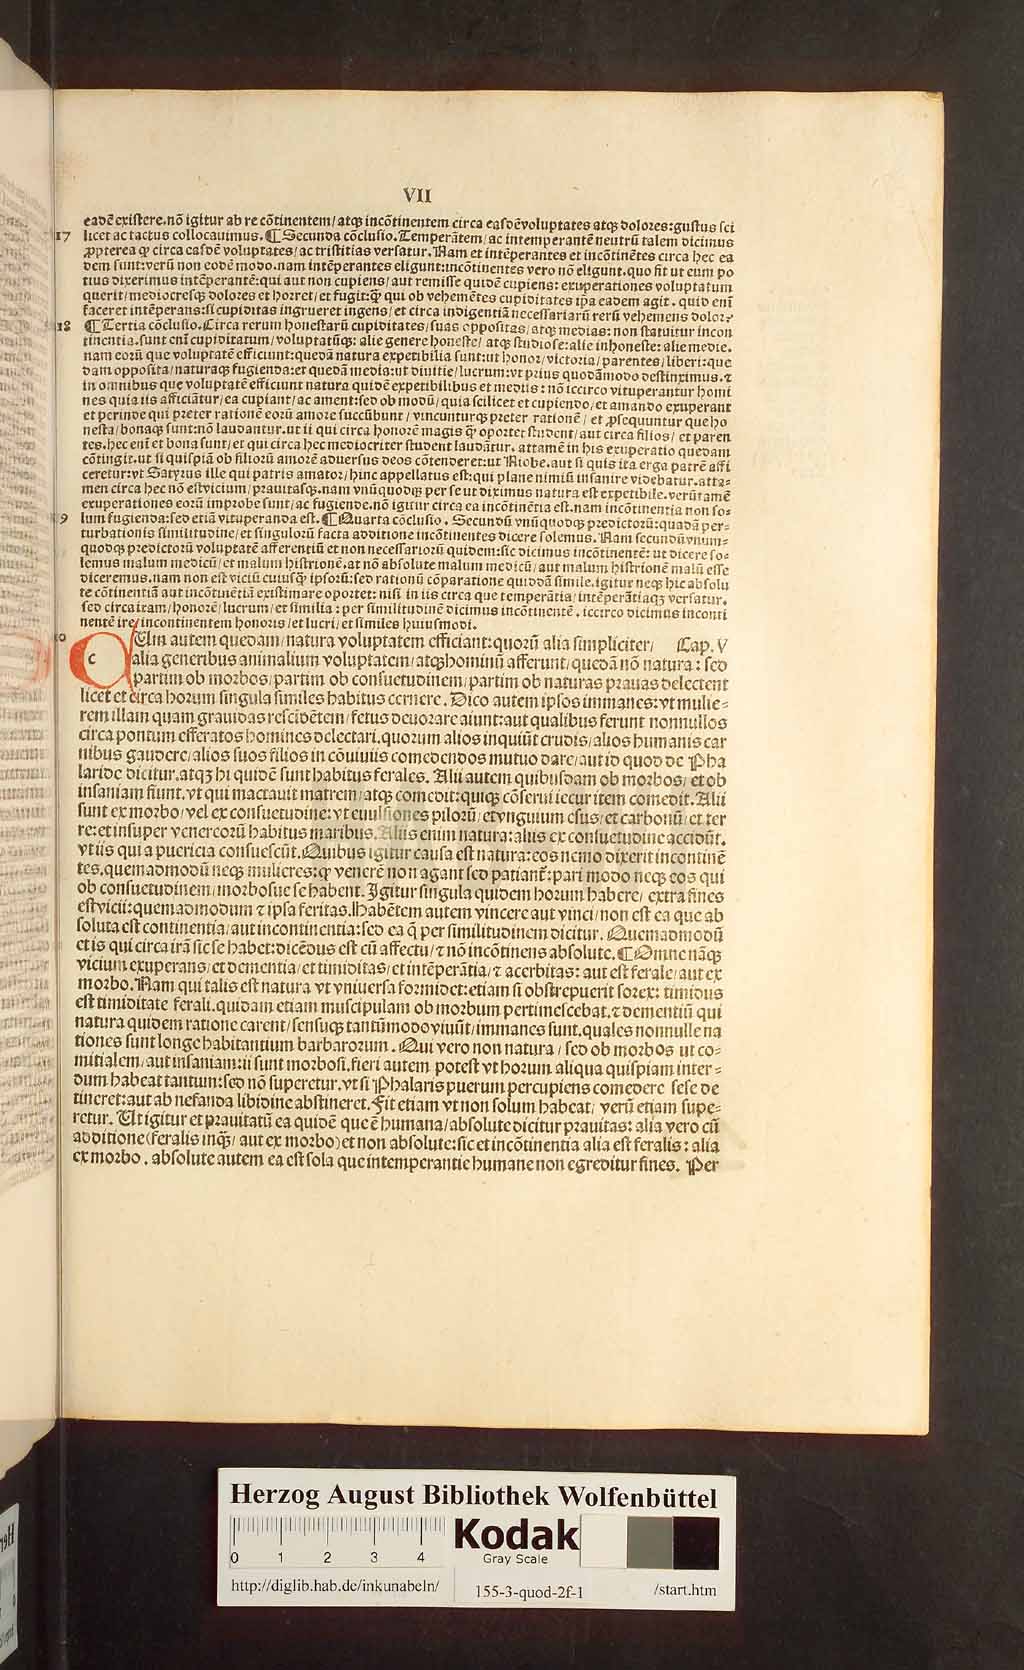 VII
eadē existere.nō igitur ab re cōtinentem/atqꝫ incōtinentem circa easdē voluptates atqꝫ dolores:gustus sci
17 licet ac tactus collocauimus.¶Secunda cōclusio.Temperātem/ac intemperantē neutrū talem dicimus
ꝓpterea ꝙ circa easdē voluptates/ac tristitias versatur.Nam et intēperantes et incōtinētes circa hec ea
dem sunt:verū non eodē modo.nam intēperantes eligunt:incōtinentes vero nō eligunt.quo fit ut eum po
tius dixerimus intēperantē:qui aut non cupiens/aut remisse quidē cupiens:exuperationes voluptatum
querit/mediocresqꝫ dolores et horret/et fugit:ꝙ̄ qui ob vehemētes cupiditates ip̄a eadem agit.quid enī
faceret intēperans:si cupiditas ingrueret ingens/et circa indigentiā necessariarū rerū vehemens dolor?
18 ¶Tertia cōclusio.Circa rerum honestarū cupiditates/suas oppositas/atqꝫ medias:non statuitur incon
tinentia.sunt enī cupiditatum/voluptatūqꝫ:alie genere honeste/atqꝫ studiose:alie inhoneste:alie medie.
nam eorū que voluptatē efficiunt:quedā natura expetibilia sunt:ut honor/victoria/parentes/liberi:que
dam opposita/naturaqꝫ fugienda:et quedā media:ut diuitie/lucrum:vt prius quodāmodo destinximus.⁊
in omnibus que voluptatē efficiunt natura quidē expetibilibus et mediis:nō iccirco vituperantur homi
nes quia iis afficiātur/ea cupiant/ac ament:sed ob modū/quia scilicet et cupiendo/et amando exuperant
et perinde qui preter rationē eorū amore succūbunt/vincunturqꝫ preter rationē/et ꝓsequuntur que ho
nesta/bonaqꝫ sunt:nō laudantur.ut ii qui circa honorē magis ꝙ̄ oportet student/aut circa filios/et paren
tes.hec enī et bona sunt/et qui circa hec mediocriter student laudātur.attamē in his exuperatio quedam
cōtingit.ut si quispiā ob filiorū amorē aduersus deos cōtenderet:ut Niobe.aut si quis ita erga patrē affi
ceretur:vt Satyrus ille qui patris amator/hinc appellatus est:qui plane nimiū insanire videbatur.atta-
men circa hec nō est vicium/prauitasqꝫ.nam vnūquodqꝫ per se ut diximus natura est expetibile.verūtamē
exuperationes eorū improbe sunt/ac fugiende.nō igitur circa ea incōtinētia est.nam incōtinentia non so-
9 lum fugienda:sed etiā vituperanda est.¶Quarta cōclusio.Secundū vnūquodqꝫ predictorū:quadā per-
turbationis similitudine/et singulorū facta additione incōtinentes dicere solemus.Nam secundū vnum-
quodqꝫ predictorū voluptatē afferentiū et non necessariorū quidem:sic dicimus incōtinentē:ut dicere so-
lemus malum medicū/et malum histrionē.at nō absolute malum medicū/aut malum histrionē malū esse
diceremus.nam non est viciū cuiusqꝫ ipsorū:sed rationū cōparatione quiddā simile.igitur neqꝫ hic absolu
te cōtinentiā aut incōtinētiā existimare oportet:nisi in iis circa que temperātia/intēperātiaqꝫ versatur.
sed circa iram/honorē/lucrum/et similia:per similitudinē dicimus incōtinentē.iccirco dicimus inconti
nentē ire/incontinentem honoris/et lucri/et similes huiusmodi.
Um autem quedam/natura voluptatem efficiant:quorū alia simpliciter/ Cap. V
c alia generibus animalium voluptatem/atqꝫ hominū afferunt/quedā nō natura:sed
partim ob morbos/partim ob consuetudinem/partim ob naturas prauas delectent
licet et circa horum singula similes habitus cernere.Dico autem ipsos immanes:vt mulie-
rem illam quam grauidas rescidētem/fetus deuorare aiunt:aut qualibus ferunt nonnullos
circa pontum efferatos homines delectari.quorum alios inquiūt crudis/alios humanis car
nibus gaudere/alios suos filios in cōuiuiis comedendos mutuo dare/aut id quod de Pha
laride dicitur.atqꝫ hi quidē sunt habitus ferales.Alii autem quibusdam ob morbos/et ob
insaniam fiunt.vt qui mactauit matrem/atqꝫ comedit:quiqꝫ cōserui iecur item comedit.Alii
sunt ex morbo/vel ex consuetudine:vt euulsiones pilorū/et vnguium esus/et carbonū/et ter
re:et insuper venereorū habitus maribus.Aliis enim natura:aliis ex consuetudine accidūt.
vt iis qui a puericia consuescūt.Quibus igitur causa est natura:eos nemo dixerit incontinē
tes.quemadmodū neqꝫ mulieres:ꝙ venerē non agant sed patiant᷑:pari modo neqꝫ eos qui
ob consuetudinem/morbosue se habent.Igitur singula quidem horum habere/extra fines
est vicii:quemadmodum ⁊ ipsa feritas.Habētem autem vincere aut vinci/non est ea que ab
soluta est continentia/aut incontinentia:sed ea q̄ per similitudinem dicitur.Quemadmodū
et is qui circa irā sic se habet:dicēdus est cū affectu/⁊ nō incōtinens absolute.¶Omne nāqꝫ
vicium exuperans/et dementia/et timiditas/et intēperātia/⁊ acerbitas:aut est ferale/aut ex
morbo.Nam qui talis est natura vt vniuersa formidet:etiam si obstrepuerit sorex:timidus
est timiditate ferali.quidam etiam muscipulam ob morbum pertimescebat.⁊ dementiū qui
natura quidem ratione carent/sensuqꝫ tantūmodo viuūt/immanes sunt.quales nonnulle na
tiones sunt longe habitantium barbarorum.Qui vero non natura/sed ob morbos ut co-
mitialem/aut insaniam:ii sunt morbosi.fieri autem potest vt horum aliqua quispiam inter-
dum habeat tantum:sed nō superetur.vt si Phalaris puerum percupiens comedere sese de
tineret:aut ab nefanda libidine abstineret.Fit etiam vt non solum habeat/verū etiam supe-
retur.Ut igitur et prauitatū ea quidē que ē humana/absolute dicitur prauitas:alia vero cū
additione(feralis inqꝫ/aut ex morbo)et non absolute:sic et incōtinentia alia est feralis:alia
ex morbo.absolute autem ea est sola que intemperantie humane non egreditur fines. Per
Herzog August Bibliothek Wolfenbüttel
0 1 2 3 4
Kodak
Gray Scale
http://diglib.hab.de/inkunabeln/ 155-3-quod-2f-1 /start.htm